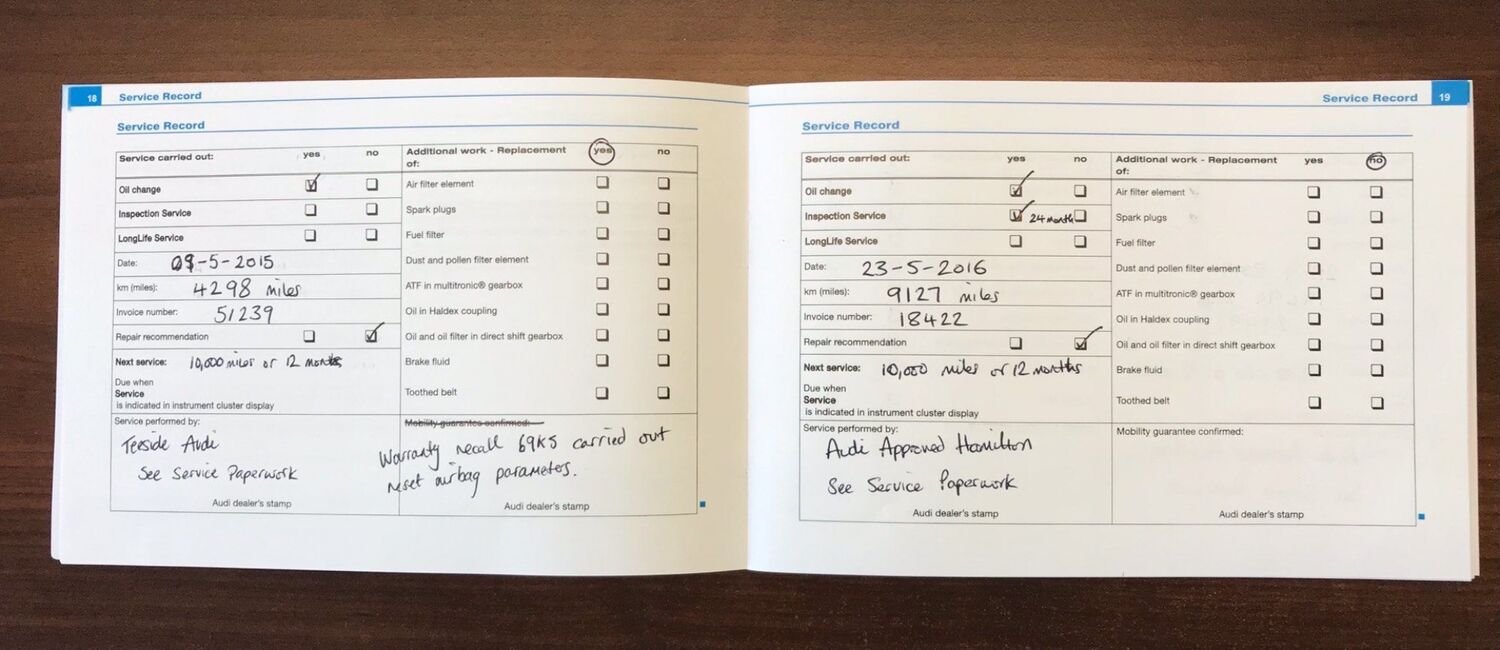 18 Service Record
Service Record
Service carried out: yes no
Oil change
Inspection Service
LongLife Service
Date: 09-5-2015
km (miles): 4298 miles
Invoice number: 51239
Repair recommendation
Next service: 10,000 miles or 12 months
Due when
Service
is indicated in instrument cluster display
Service performed by:
Teeside Audi
See Service Paperwork
Audi dealer's stamp
Additional work - Replacement yes no
of:
Air filter element
Spark plugs
Fuel filter
Dust and pollen filter element
ATF in multitronic® gearbox
Oil in Haldex coupling
Oil and oil filter in direct shift gearbox
Brake fluid
Toothed belt
Mobility guarantee confirmed:
Warranty recall 69K5 carried out
reset airbag parameters.
Audi dealer's stamp
Service Record 19
Service Record
Service carried out: yes no
Oil change
Inspection Service 24 month
LongLife Service
Date: 23-5-2016
km (miles): 9127 miles
Invoice number: 18422
Repair recommendation
Next service: 10,000 miles or 12 months
Due when
Service
is indicated in instrument cluster display
Service performed by:
Audi Approved Hamilton
See Service Paperwork
Audi dealer's stamp
Additional work - Replacement yes no
of:
Air filter element
Spark plugs
Fuel filter
Dust and pollen filter element
ATF in multitronic® gearbox
Oil in Haldex coupling
Oil and oil filter in direct shift gearbox
Brake fluid
Toothed belt
Mobility guarantee confirmed:
Audi dealer's stamp